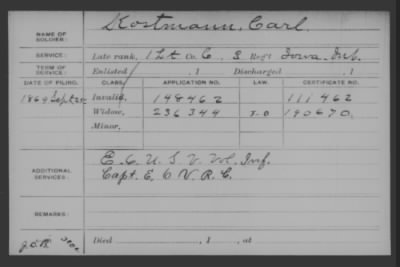 NAME OF SOLDIER: Kostmann, Carl.
SERVICE: Late rank, 1 Lt Co. C, 3 Reg't Iowa Inf.
TERM OF SERVICE: Enlisted , 1 Discharged , 1
DATE OF FILING. CLASS. APPLICATION NO. LAW. CERTIFICATE NO.
1864 Sept Invalid, 148462 111462
Widow, 236344 190670
Minor,
ADDITIONAL SERVICES: E. 6 U.S.V. Vol. Inf.
Capt. E. 6 V.R.C.
REMARKS:
Died , 1 , at